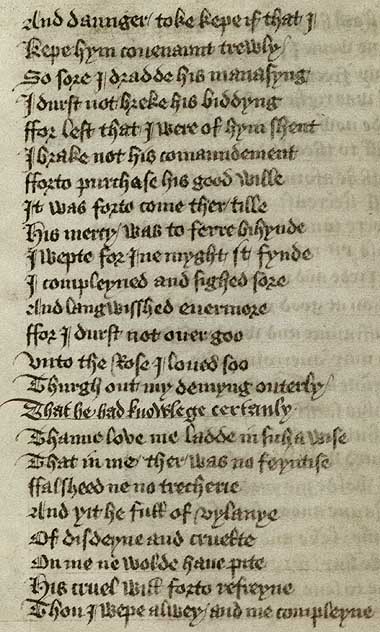 And daunger toke kepe if that I
Kepe hym couenaunt trewly
So sore I dradde his manasyng
I durst not breke his biddyng
ffor lest that I were of hym shent
I brake not his comaundement
fforto purchase his good wille
It was forto come ther tille
His mercy was to ferre bihynde
I wepte for I ne myght it fynde
I compleyned and sighed sore
And langwisshed euermore
ffor I durst not ouer goo
Vnto the Rose I loued soo
Thurgh out my demyng outerly
That he had knowlege certanly
Thanne love me ladde in such a wise
That in me ther was no feyntise
ffalsheed ne no trecherie
And yit he full of vylanye
Of disdeyne and cruelte
On me ne wolde haue pite
His cruel will forto refreyne
Thou I wepe alwey and me compleyne